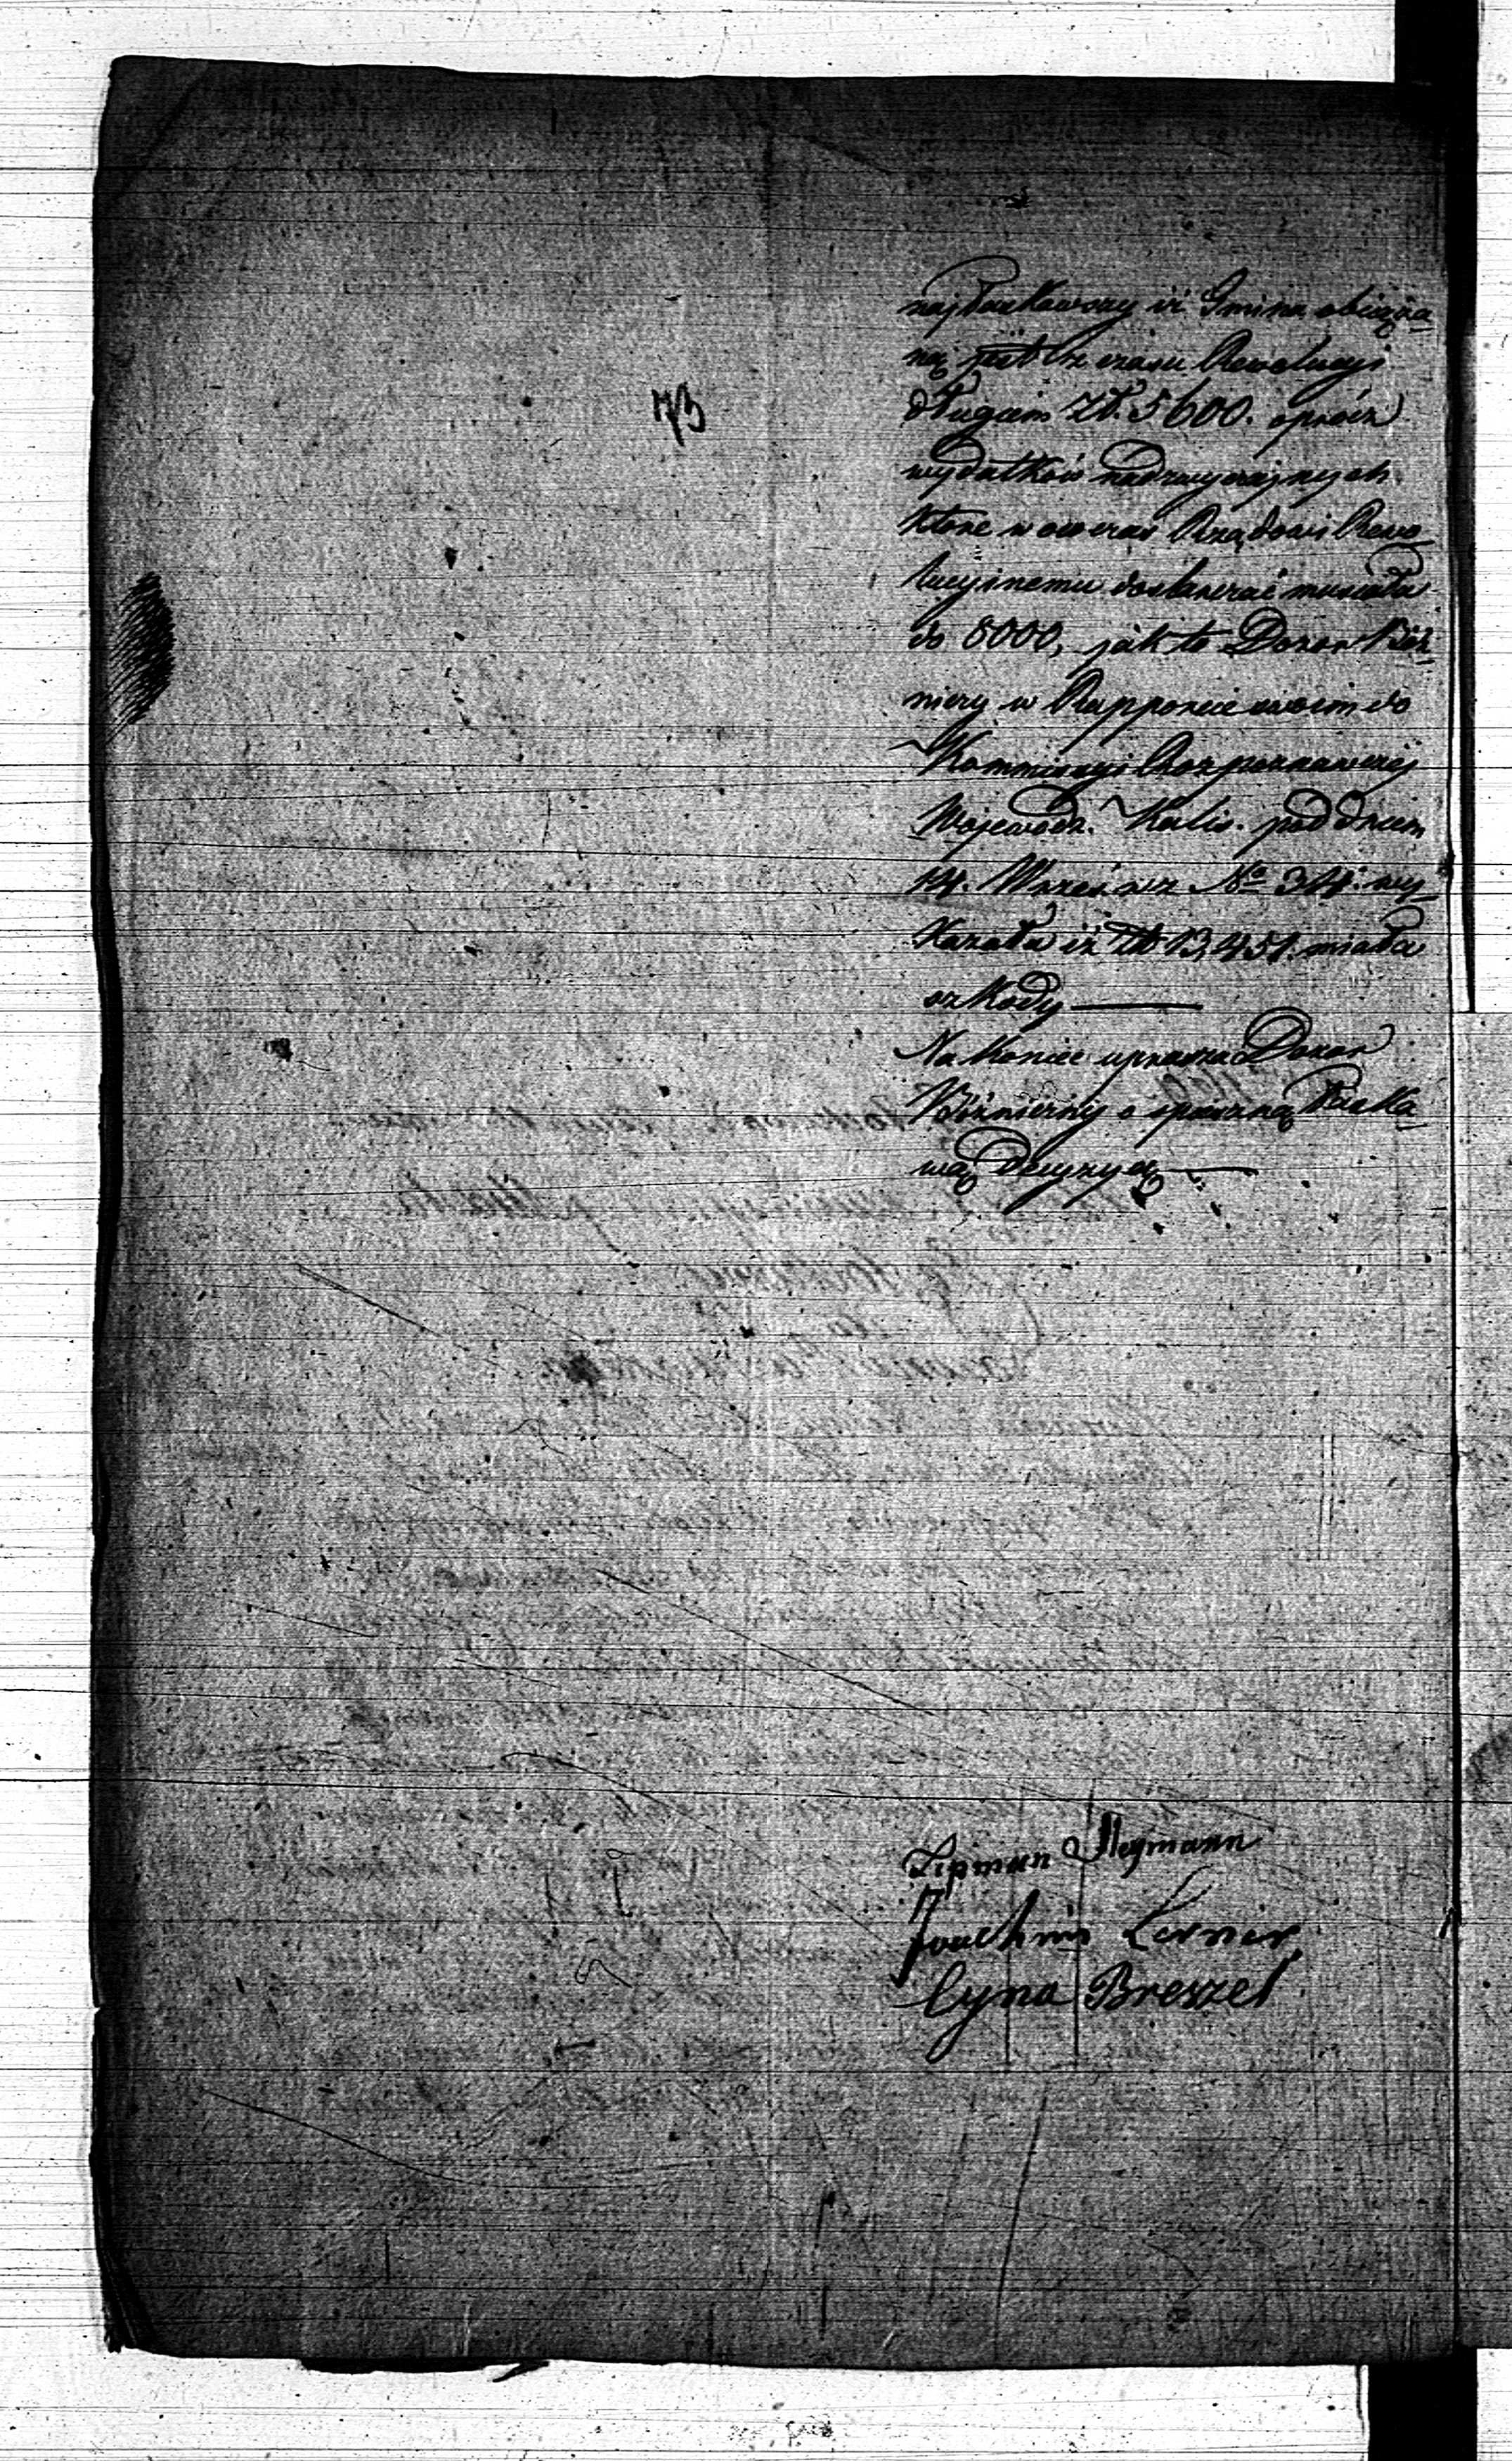 73
najłaskawszy iż Gmina obciąża-
ną jest z czasu Rewolucyi
długiem Zł. 5600. oprócz
wydatków nadzwyczajnych
które w owczas Rządowi Rewo-
lucyinemu dostarczać musiała
do 8000, jak to Dozor Bóż-
niczy w Rapporcie swoim do
Kommissyi Rozpoznawczéj
Wojewodz. Kalis. pod dniem
14. Wrześ. Nº 314. wy-
kazała iż Zł 13,451. miała
szkody
Na koniec uprasza Dozor
Bóżniczny o spieszną Łaska-
wą Decyzyą
Lipman Heymann
Joachim Lerner
Cyna Breszel